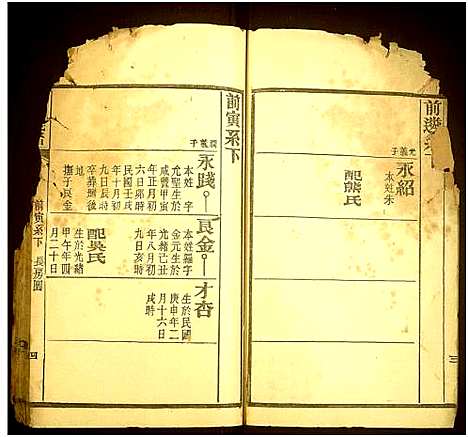 前
系下
元義子
永紹
本姓朱
配熊氏
前寅系下
義子
永踐
本姓 字
允聖生於
咸豐甲寅
年正月初
六日卯時
民國壬戌
年十月初
九日辰時
卒葬
撫子良金
良金
本姓羅字
金元生於
光緒己丑
年八月初
九日亥時
配吳氏
生於光緒
甲午年四
月二十日
才杏
生於民國
庚申年二
月十六日
戌時
前寅系下
長房園
四